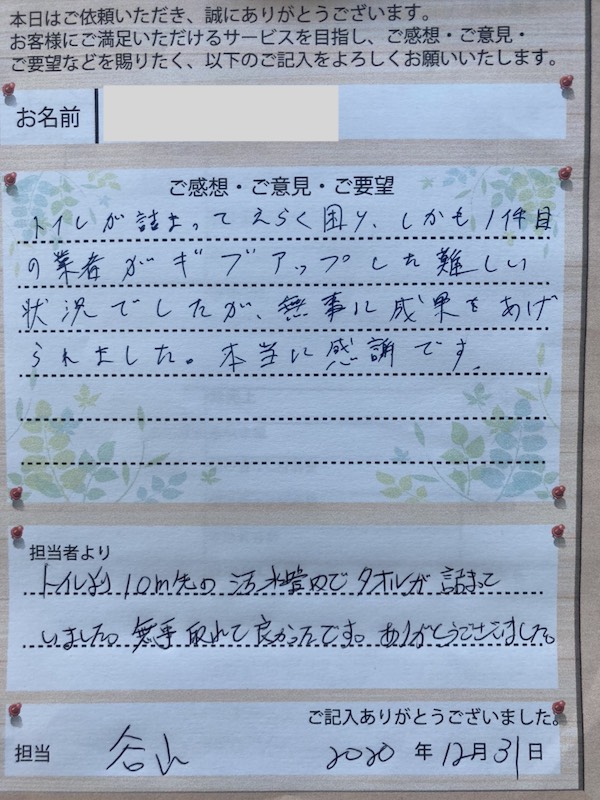 本日はご依頼いただき、誠にありがとうございます。
お客様にご満足いただけるサービスを目指し、ご感想・ご意見・
ご要望などを賜りたく、以下のご記入をよろしくお願いいたします。
お名前
ご感想・ご意見・ご要望
トイレが詰まってえらく困り、しかも1件目
の業者がギブアップした難しい
状況でしたが、無事に成果をあげ
られました。本当に感謝です。
担当者より
トイレより10m先の汚水管内でタオルが詰まって
いました。無事取れて良かったです。ありがとうございました。
ご記入ありがとうございました。
担当 谷山 2020年12月31日